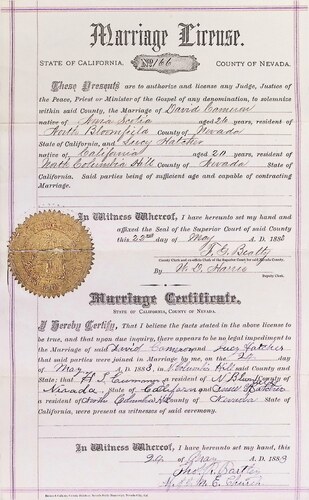 Marriage License.
STATE OF CALIFORNIA, No. 166 COUNTY OF NEVADA.
These Presents are to authorize and license any Judge, Justice of
the Peace, Priest or Minister of the Gospel of any denomination, to solemnize
within said County, the Marriage of David Cameron
native of Nova Scotia aged 26 years, resident of
North Bloomfield County of Nevada
State of California, and Lucy Hatcher
native of California aged 20 years, resident of
North Columbia Hill County of Nevada State of
California. Said parties being of sufficient age and capable of contracting
Marriage.
In Witness Whereof, I have hereunto set my hand and
affixed the Seal of the Superior Court of said County
this 22nd day of May A. D. 1883
F. G. Beatty
County Clerk and ex-officio Clerk of the Superior Court for said Nevada County.
By W. D. Harris
Deputy Clerk.
Marriage Certificate.
STATE OF CALIFORNIA, COUNTY OF NEVADA.
I Hereby Certify, That I believe the facts stated in the above license to
be true, and that upon due inquiry, there appears to be no legal impediment to
the Marriage of said David Cameron and Lucy Hatcher
that said parties were joined in Marriage by me, on the 24
day of May A. D. 1883, in Columbia Hill said County and
State; that H. S. resident of N Bloomfield
Nevada, State of California and Hatcher
a resident of North Columbia Hill County of Nevada State of
California, were present as witnesses of said ceremony.
In Witness Whereof, I have hereunto set my hand, this
24 day of May A. D. 1883